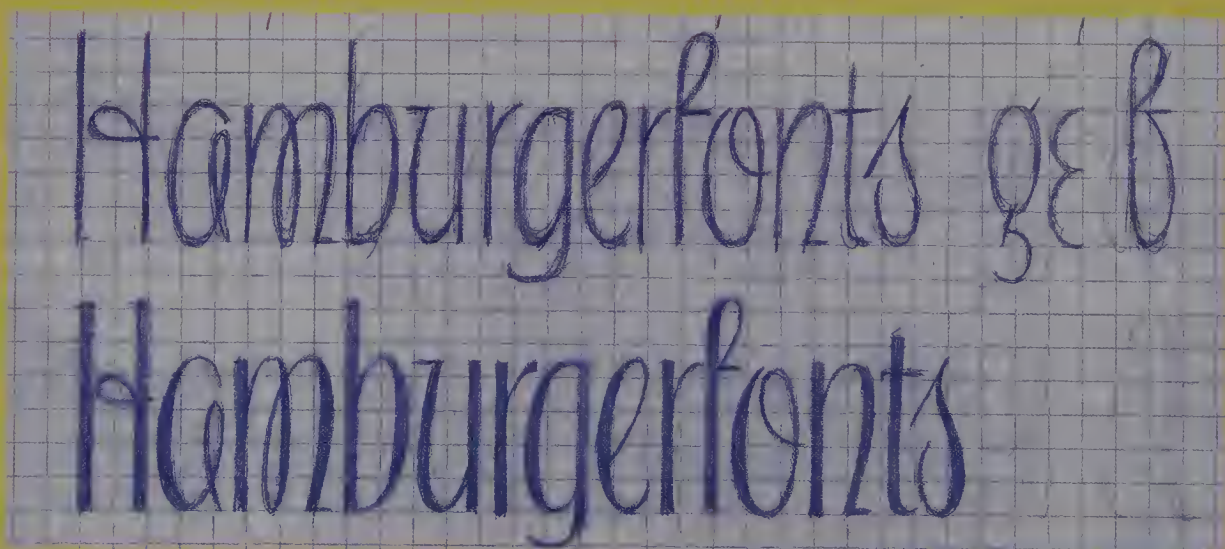 Hamburgerfonts
Hamburgerfonts